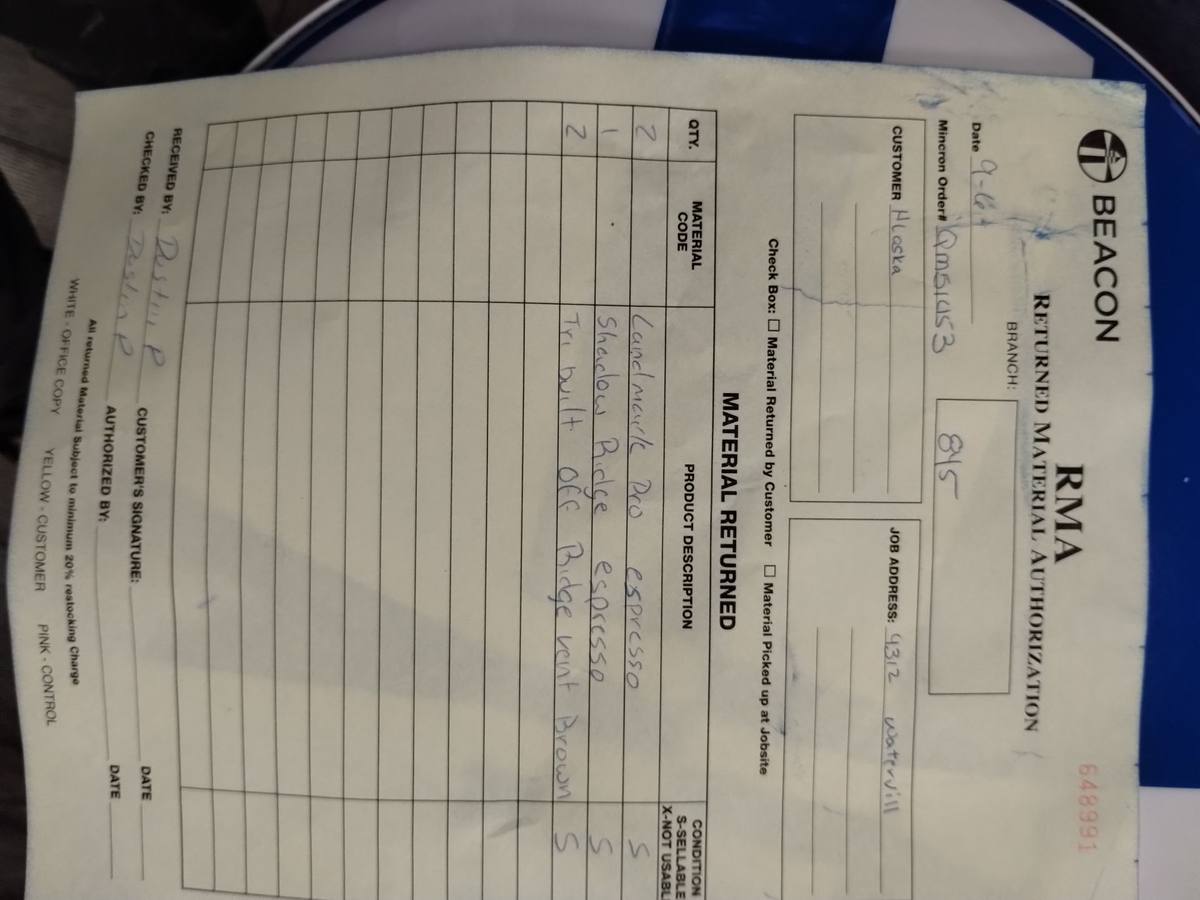 BEACON
RMA
RETURNED MATERIAL AUTHORIZATION
648991
BRANCH: 845
Date
Mincron Order#
CUSTOMER Alaska
JOB ADDRESS: 4312 watervill
Check Box: ☐ Material Returned by Customer ☐ Material Picked up at Jobsite
MATERIAL RETURNED
QTY. MATERIAL CODE PRODUCT DESCRIPTION CONDITION S-SELLABLE X-NOT USABL
2 Landmark Pro espresso S
1 Shadow Ridge espresso S
2 Tri built off Ridge vent Brown S
RECEIVED BY: Dustin P CUSTOMER'S SIGNATURE: DATE
CHECKED BY: Dustin P AUTHORIZED BY: DATE
All returned Material Subject to minimum 20% restocking Charge
WHITE - OFFICE COPY YELLOW - CUSTOMER PINK - CONTROL